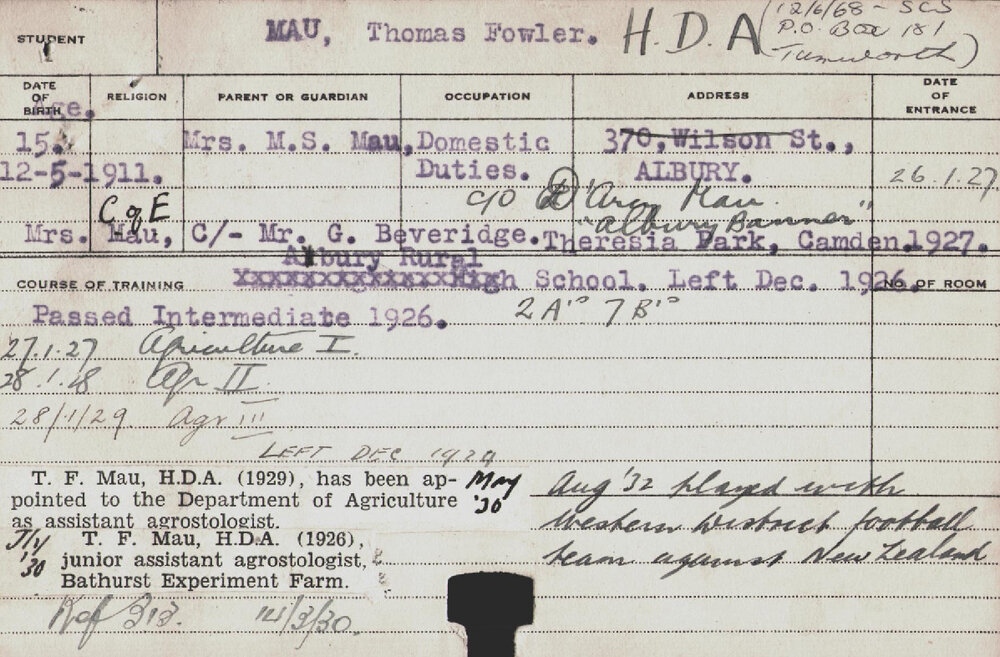 STUDENT
MAU, Thomas Fowler. H.D.A (12/6/68 - SCS
P.O. Box 181
Tamworth)
DATE OF BIRTH
RELIGION
PARENT OR GUARDIAN
OCCUPATION
ADDRESS
DATE OF ENTRANCE
Age.
15. Mrs. M.S. Mau, Domestic 370, Wilson St.,
12-5-1911. Duties. ALBURY. 26.1.27
C of E c/o D'Arcy Mau
"Albury Banner"
Mrs. Mau, C/- Mr. G. Beveridge. Theresia Park, Camden. 1927.
Albury Rural
COURSE OF TRAINING High School. Left Dec. 1926. NO. OF ROOM
Passed Intermediate 1926. 2 A's 7 B's
27.1.27 Agriculture I.
28.1.28 Agr II.
28/1/29. Agr III
LEFT DEC 1929
T. F. Mau, H.D.A. (1929), has been ap-
pointed to the Department of Agriculture
as assistant agrostologist.
May '30
T. F. Mau, H.D.A. (1926),
junior assistant agrostologist,
Bathurst Experiment Farm.
Aug '32 played with
Western District football
team against New Zealand
Ref 313. 14/3/30.